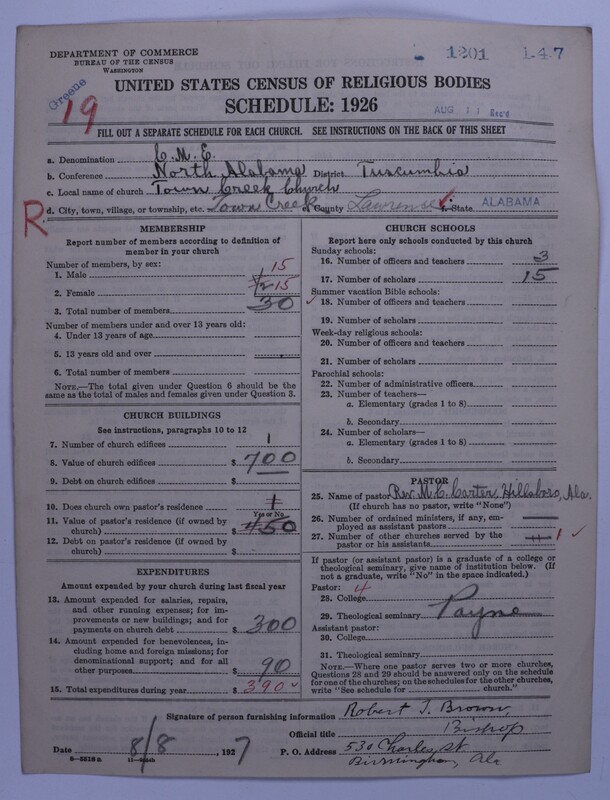 DEPARTMENT OF COMMERCE
BUREAU OF THE CENSUS
WASHINGTON
1201 1-47
Greene
19
UNITED STATES CENSUS OF RELIGIOUS BODIES
SCHEDULE: 1926
AUG 11 Rec'd
FILL OUT A SEPARATE SCHEDULE FOR EACH CHURCH. SEE INSTRUCTIONS ON THE BACK OF THIS SHEET
a. Denomination C.M.E.
b. Conference North Alabama District Tuscumbia
c. Local name of church Town Creek Church
R
d. City, town, village, or township, etc. Town Creek e. County Lawrence f. State ALABAMA
MEMBERSHIP
Report number of members according to definition of
member in your church
Number of members, by sex:
1. Male 15
2. Female 15
3. Total number of members 30
Number of members under and over 13 years old:
4. Under 13 years of age
5. 13 years old and over
6. Total number of members
NOTE.—The total given under Question 6 should be the
same as the total of males and females given under Question 3.
CHURCH BUILDINGS
See instructions, paragraphs 10 to 12
7. Number of church edifices 1
8. Value of church edifices $ 700
9. Debt on church edifices $
10. Does church own pastor's residence 1
Yes or No
11. Value of pastor's residence (if owned by
church) $ 450
12. Debt on pastor's residence (if owned by
church) $
EXPENDITURES
Amount expended by your church during last fiscal year
13. Amount expended for salaries, repairs,
and other running expenses; for im-
provements or new buildings; and for
payments on church debt $ 300
14. Amount expended for benevolences, in-
cluding home and foreign missions; for
denominational support; and for all
other purposes $ 90
15. Total expenditures during year $ 390
CHURCH SCHOOLS
Report here only schools conducted by this church
Sunday schools:
16. Number of officers and teachers 3
17. Number of scholars 15
Summer vacation Bible schools:
18. Number of officers and teachers
19. Number of scholars
Week-day religious schools:
20. Number of officers and teachers
21. Number of scholars
Parochial schools:
22. Number of administrative officers
23. Number of teachers—
a. Elementary (grades 1 to 8)
b. Secondary
24. Number of scholars—
a. Elementary (grades 1 to 8)
b. Secondary
PASTOR
25. Name of pastor Rev. M.C. Carter, Hillsboro, Ala.
(If church has no pastor, write "None")
26. Number of ordained ministers, if any, em-
ployed as assistant pastors
27. Number of other churches served by the
pastor or his assistants 1
If pastor (or assistant pastor) is a graduate of a college or
theological seminary, give name of institution below. (If
not a graduate, write "No" in the space indicated.)
Pastor: 4
28. College
29. Theological seminary Payne
Assistant pastor:
30. College
31. Theological seminary
NOTE.—Where one pastor serves two or more churches,
Questions 28 and 29 should be answered only on the schedule
for one of the churches; on the schedules for the other churches,
write "See schedule for church."
Signature of person furnishing information Robert T. Brown,
Official title Bishop
Date 8/8, 1927 P. O. Address 530 Charles St
Birmingham, Ala
8-5518 a